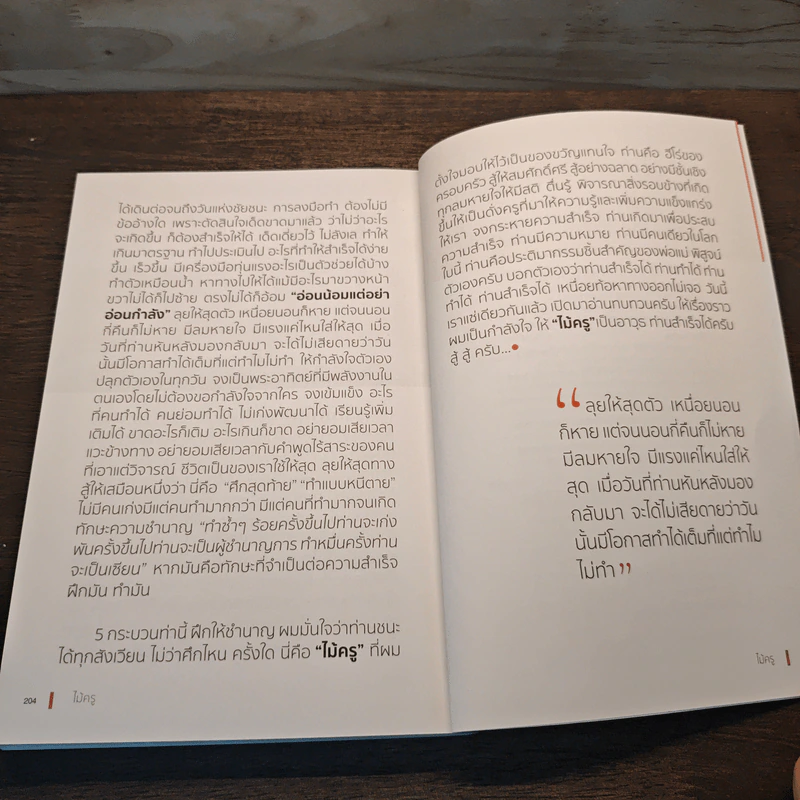 ได้เดินต่อจนถึงวันแห่งชัยชนะ การลงมือทำ ต้องไม่มี
ข้ออ้างใด เพราะตัดสินใจเด็ดขาดมาแล้ว ว่าไม่ว่าอะไร
จะเกิดขึ้น ก็ต้องสำเร็จให้ได้ เด็ดเดี่ยวไว้ ไม่ลังเล ทำให้
เกินมาตรฐาน ทำไปประเมินไป อะไรที่ทำให้สำเร็จได้ง่าย
ขึ้น เร็วขึ้น มีเครื่องมือทุ่นแรงอะไรเป็นตัวช่วยได้บ้าง
ทำตัวเหมือนน้ำ หาทางไปให้ได้แม้มีอะไรมาขวางหน้า
ขวาไม่ได้ก็ไปซ้าย ตรงไม่ได้ก็อ้อม “อ่อนน้อมแต่อย่า
อ่อนกำลัง” ลุยให้สุดตัว เหนื่อยนอนก็หาย แต่จนนอน
ที่คืนก็ไม่หาย มีลมหายใจ มีแรงแค่ไหนใส่ให้สุด เมื่อ
วันที่ท่านหันหลังมองกลับมา จะได้ไม่เสียดายว่าวัน
นั้นมีโอกาสทำได้เต็มที่แต่ทำไมไม่ทำ ให้กำลังใจตัวเอง
ปลุกตัวเองในทุกวัน จงเป็นพระอาทิตย์ที่มีพลังงานใน
ตนเองโดยไม่ต้องขอกำลังใจจากใคร จงเข้มแข็ง อะไร
ที่คนทำได้ คนย่อมทำได้ ไม่เก่งพัฒนาได้ เรียนรู้เพิ่ม
เติมได้ ขาดอะไรก็เติม อะไรเกินก็ขาด อย่ายอมเสียเวลา
แวะข้างทาง อย่ายอมเสียเวลากับคำพูดไร้สาระของคน
ที่เอาแต่วิจารณ์ ชีวิตเป็นของเราใช้ให้สุด ลุยให้สุดทาง
สู้ให้เสมือนหนึ่งว่า นี่คือ “ศึกสุดท้าย” “ทำแบบหนีตาย”
ไม่มีคนเก่งมีแต่คนทำมากกว่า มีแต่คนที่ทำมากจนเกิด
ทักษะความชำนาญ “ทำซ้ำๆ ร้อยครั้งขึ้นไปท่านจะเก่ง
พันครั้งขึ้นไปท่านจะเป็นผู้ชำนาญการ ทำหมื่นครั้งท่าน
จะเป็นเซียน” หากมันคือทักษะที่จำเป็นต่อความสำเร็จ
ฝึกมัน ทำมัน
5 กระบวนท่านี้ ฝึกให้ชำนาญ ผมมั่นใจว่าท่านชนะ
ได้ทุกสังเวียน ไม่ว่าศึกไหน ครั้งใด นี่คือ “ไม้ครู” ที่ผม
204 ไม้ครู
ตั้งใจมอบให้ไว้เป็นของขวัญแทนใจ ท่านคือ ฮีโร่ของ
ครอบครัว สู้ให้สมศักดิ์ศรี สู้อย่างฉลาด อย่างมีชั้นเชิง
ทุกลมหายใจให้มีสติ ตื่นรู้ พิจารณาสิ่งรอบข้างที่เกิด
ขึ้นให้เป็นดั่งครูที่มาให้ความรู้และเพิ่มความแข็งแกร่ง
ให้เรา จงกระหายความสำเร็จ ท่านเกิดมาเพื่อประสบ
ความสำเร็จ ท่านมีความหมาย ท่านมีคนเดียวในโลก
ใบนี้ ท่านคือประติมากรรมชิ้นสำคัญของพ่อแม่ พิสูจน์
ตัวเองครับ บอกตัวเองว่าท่านสำเร็จได้ ท่านทำได้ ท่าน
ทำได้ ท่านสำเร็จได้ เหนื่อยท้อหาทางออกไม่เจอ วันนี้
เราแซ่เดียวกันแล้ว เปิดมาอ่านทบทวนครับ ให้เรื่องราว
ผมเป็นกำลังใจ ให้ “ไม้ครู”เป็นอาวุธ ท่านสำเร็จได้ครับ
สู้ สู้ ครับ...
“ ลุยให้สุดตัว เหนื่อยนอน
ก็หาย แต่จนนอนที่คืนก็ไม่หาย
มีลมหายใจ มีแรงแค่ไหนใส่ให้
สุด เมื่อวันที่ท่านหันหลังมอง
กลับมา จะได้ไม่เสียดายว่าวัน
นั้นมีโอกาสทำได้เต็มที่แต่ทำไม
ไม่ทำ ”
ไม้ครู